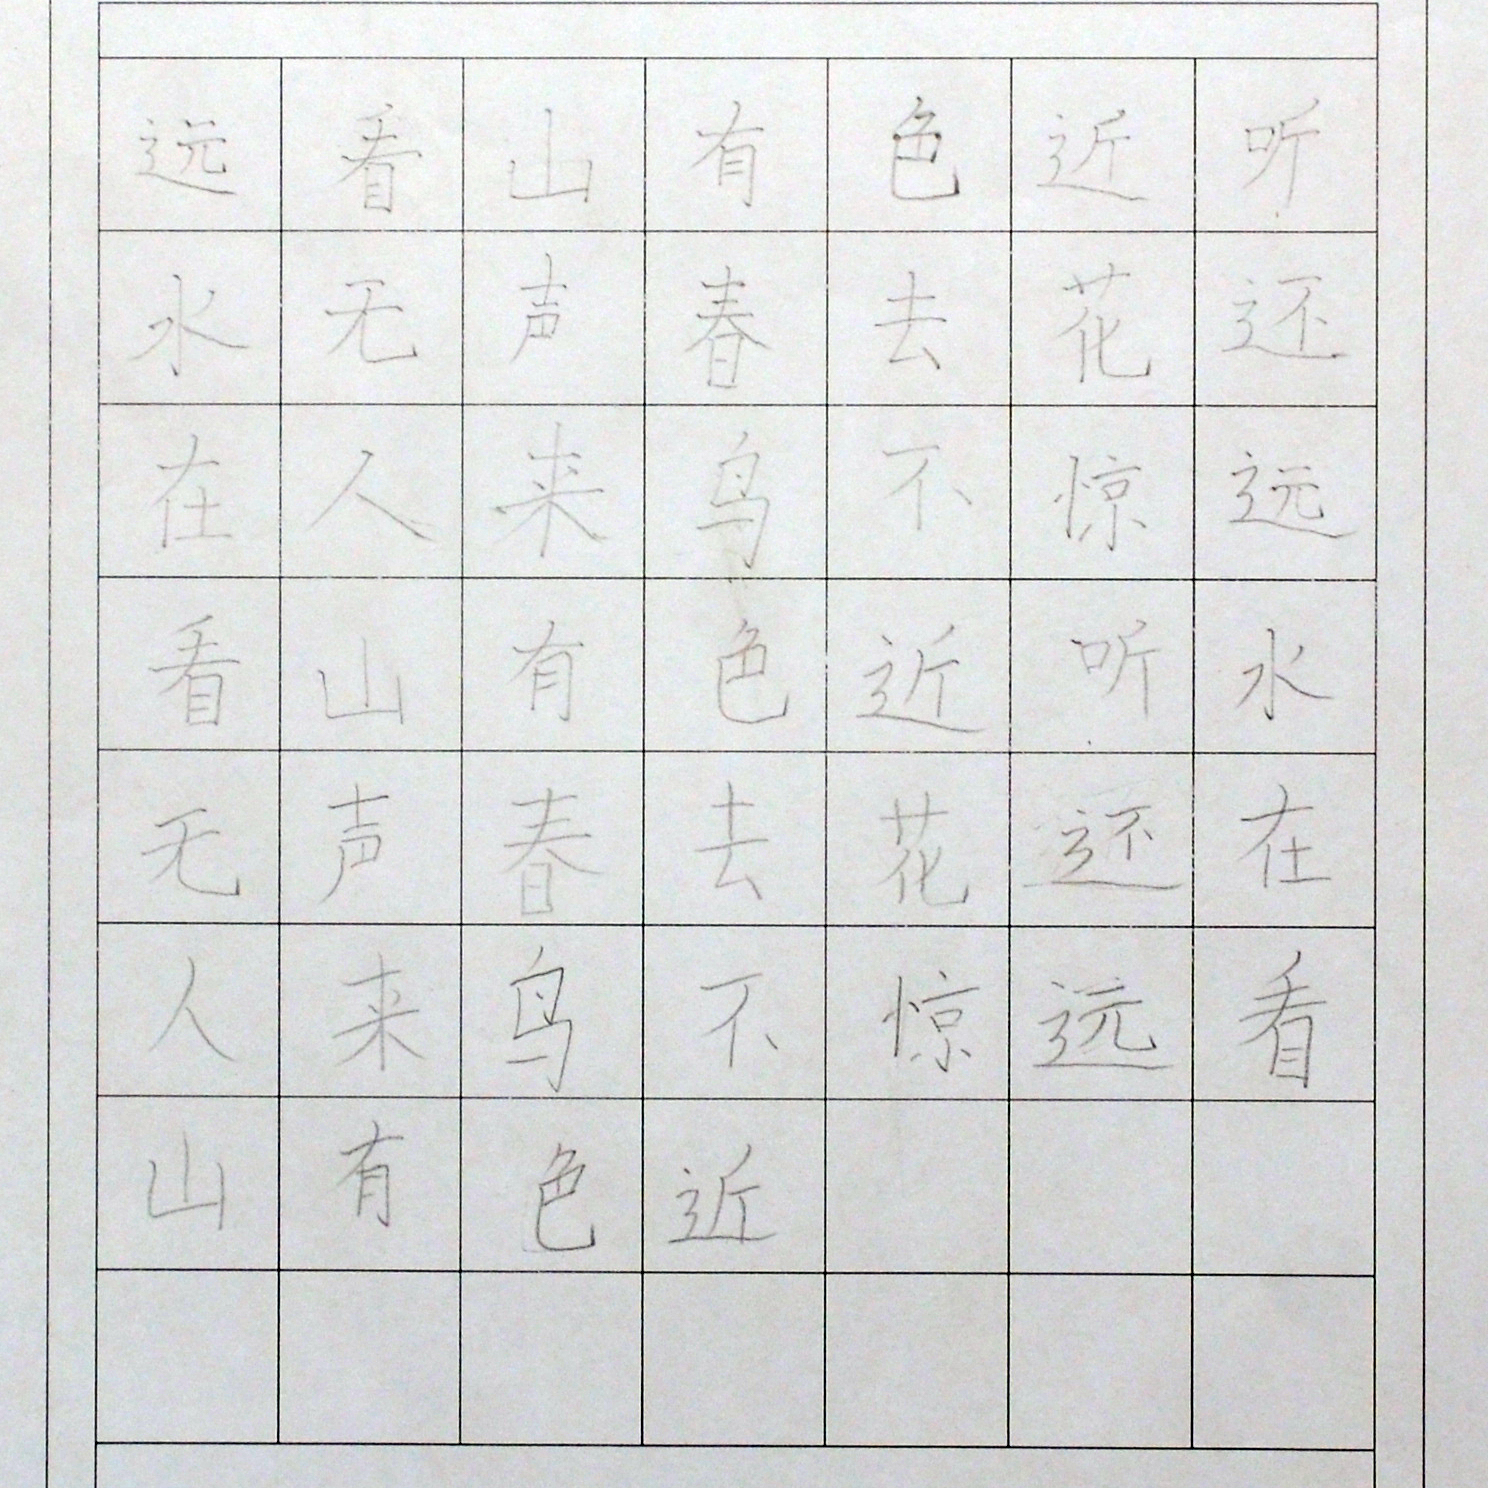 远看山有色近听
水无声春去花还
在人来鸟不惊远
看山有色近听水
无声春去花还在
人来鸟不惊远看
山有色近